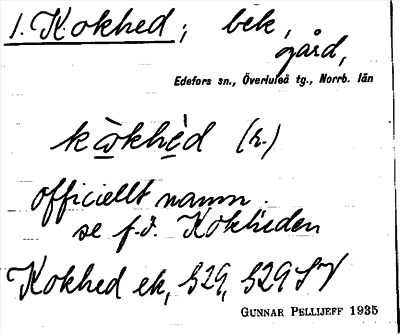 1. Kokhed; bek,
gård,
Edefors sn., Överluleå tg., Norrb. län
kòkhèd (r.)
officiellt namn.
se f.ö. Kokheden
Kokhed ek, S29, S29 SV
GUNNAR PELLIJEFF 1935